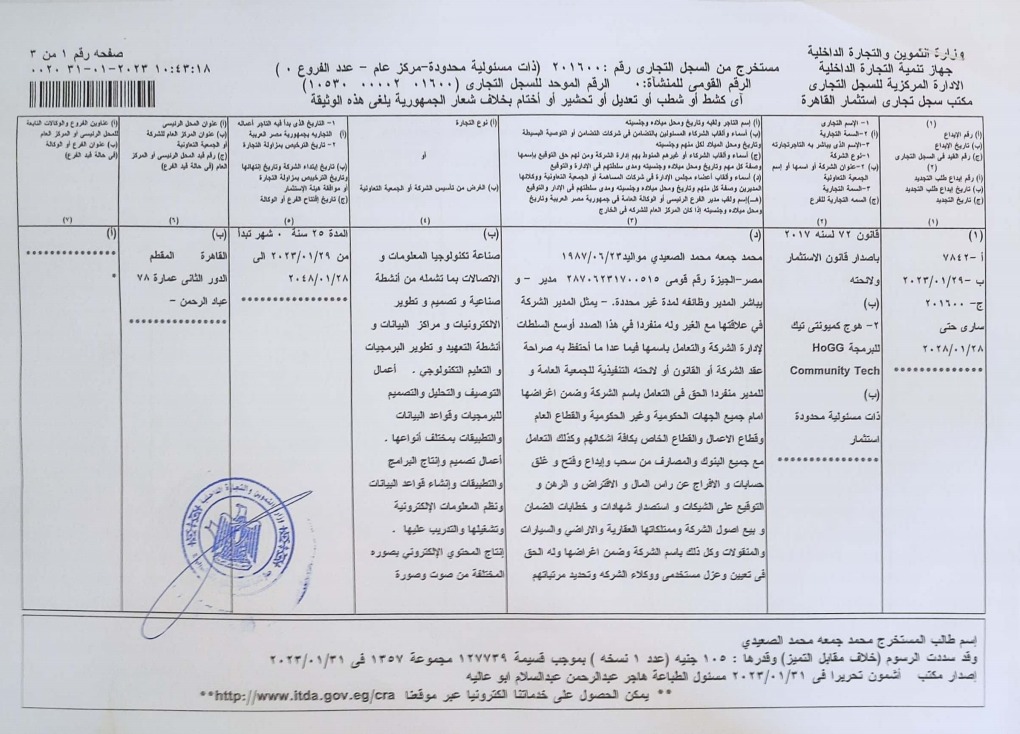 وزارة التموين والتجارة الداخلية
جهاز تنمية التجارة الداخلية
الادارة المركزية للسجل التجارى
مكتب سجل تجارى استثمار القاهرة
مستخرج من السجل التجارى رقم : ٢٠١٦٠٠ (ذات مسئولية محدودة-مركز عام - عدد الفروع ٠ )
الرقم القومى للمنشأة: ٠ الرقم الموحد للسجل التجارى (٠١٦٠٠ ٠٠٠٠٢ ١٠٥٣٠)
أى كشط أو شطب أو تعديل أو تحشير أو أختام بخلاف شعار الجمهورية يلغى هذه الوثيقة
صفحه رقم ١ من ٣
٠٠٢٠ ٣١-٠١-٢٠٢٣ ١٠:٤٣:١٨
(١)
أ) رقم الإيداع
ب) تاريخ الإيداع
ج) رقم القيد فى السجل التجارى
(٢)
أ) رقم إيداع طلب التجديد
ب) تاريخ إيداع طلب التجديد
ج) تاريخ التجديد
(١)
١- الإسم التجارى
أ) ٢-السمة التجارية
٣-الإسم الذى يباشر به التاجرتجارته
١-نوع الشركة
ب) ٢-عنوان الشركة أو اسمها أو إسم
الجمعية التعاونية
٣-السمة التجارية
ج) السمه التجارية للفرع
(٢)
أ) إسم التاجر ولقبه وتاريخ ومحل ميلاده وجنسيته
ب) أسماء وألقاب الشركاء المسئولين بالتضامن فى شركات التضامن أو التوصية البسيطة
وتاريخ ومحل الميلاد لكل منهم وجنسيته
ج) أسماء وألقاب الشركاء أو غيرهم المنوط بهم إدارة الشركة ومن لهم حق التوقيع بإسمها
وصفة كل منهم وتاريخ ومحل ميلاده وجنسيته ومدى سلطاتهم فى الإدارة و التوقيع
د) أسماء وألقاب أعضاء مجلس الإدارة فى شركات المساهمة أو الجمعية التعاونية ووكلائها
المديرين وصفة كل منهم وتاريخ ومحل ميلاده وجنسيته ومدى سلطتهم فى الإدار والتوقيع
هـ) إسم ولقب مدير الفرع الرئيسى أو الوكالة العامة فى جمهورية مصر العربية وتاريخ
ومحل ميلاده وجنسيته إذا كان المركز العام للشركه فى الخارج
(٣)
أ) نوع التجارة
أو
ب) الغرض من تأسيس الشركة أو الجمعية التعاونية
(٤)
١- التاريخ الذى بدأ فيه التاجر أعماله
أ) التجاريه بجمهورية مصر العربية
٢- تاريخ الترخيص بمزاولة التجارة
ب) تاريخ إبتداء الشركة وتاريخ إنتهائها
وتاريخ الترخيص بمزاولة التجارة
أو موافقة هيئة الإستثمار
ج) تاريخ إفتتاح الفرع أو الوكالة
(٥)
أ) عنوان المحل الرئيسى
ب) عنوان المركز العام للشركة
أو الجمعية التعاونية
ج) رقم قيد المحل الرئيسى أو المركز
العام (فى حالة قيد الفرع)
(٦)
أ) عناوين الفروع والوكالات التابعة
للمحل الرئيسى أو المركز العام
ب) عنوان الفرع أو الوكالة
(فى حالة قيد الفرع)
(٧)
(١)
أ -٧٨٤٢
ب -٢٠٢٣/٠١/٢٩
ج- ٢٠١٦٠٠
سارى حتى
٢٠٢٨/٠١/٢٨
**************
قانون ٧٢ لسنه ٢٠١٧
باصدار قانون الاستثمار
ولائحته
(ب)
٢- هوج كميونتى تيك
للبرمجة HoGG
Community Tech
(ب)
ذات مسئولية محدودة
استثمار
***************
(د)
محمد جمعه محمد الصعيدي مواليد١٩٨٧/٠٦/٢٣
مصر-الجيزة رقم قومى ٢٨٧٠٦٢٣١٧٠٠٥١٥ مدير - و
يباشر المدير وظائفه لمدة غير محددة. - يمثل المدير الشركة
في علاقتها مع الغير وله منفردا في هذا الصدد أوسع السلطات
لإدارة الشركة والتعامل باسمها فيما عدا ما أحتفظ به صراحة
عقد الشركة أو القانون أو لائحته التنفيذية للجمعية العامة و
للمدير منفردا الحق فى التعامل باسم الشركة وضمن اغراضها
امام جميع الجهات الحكومية وغير الحكومية والقطاع العام
وقطاع الاعمال والقطاع الخاص بكافة اشكالهم وكذلك التعامل
مع جميع البنوك والمصارف من سحب وإيداع وفتح و غلق
حسابات و الافراج عن راس المال و الاقتراض و الرهن و
التوقيع على الشيكات و استصدار شهادات و خطابات الضمان
و بيع اصول الشركة وممتلكاتها العقارية والاراضي والسيارات
والمنقولات وكل ذلك باسم الشركة وضمن اغراضها وله الحق
فى تعيين وعزل مستخدمى ووكلاء الشركه وتحديد مرتباتهم
(ب)
صناعة تكنولوجيا المعلومات و
الاتصالات بما تشمله من أنشطة
صناعية و تصميم و تطوير
الالكترونيات و مراكز البيانات و
أنشطة التعهيد و تطوير البرمجيات
و التعليم التكنولوجي . أعمال
التوصيف والتحليل والتصميم
للبرمجيات وقواعد البيانات
والتطبيقات بمختلف أنواعها .
أعمال تصميم وإنتاج البرامج
والتطبيقات وإنشاء قواعد البيانات
ونظم المعلومات الإلكترونية
وتشغيلها والتدريب عليها .
إنتاج المحتوي الإلكتروني بصوره
المختلفة من صوت وصورة
المدة ٢٥ سنة ٠ شهر تبدأ
من ٢٠٢٣/٠١/٢٩ الى
٢٠٤٨/٠١/٢٨
****************
(ب)
القاهرة المقطم
الدور الثانى عمارة ٧٨
عباد الرحمن -
***************
(أ)
**************
*
إسم طالب المستخرج محمد جمعه محمد الصعيدي
وقد سددت الرسوم (خلاف مقابل التميز) وقدرها : ١٠٥ جنيه (عدد ١ نسخه ) بموجب قسيمة ١٢٧٧٣٩ مجموعة ١٣٥٧ فى ٢٠٢٣/٠١/٣١
إصدار مكتب أشمون تحريرا فى ٢٠٢٣/٠١/٣١ مسئول الطباعة هاجر عبدالرحمن عبدالسلام ابو عاليه
** يمكن الحصول على خدماتنا الكترونيا عبر موقعنا http://www.itda.gov.eg/cra**